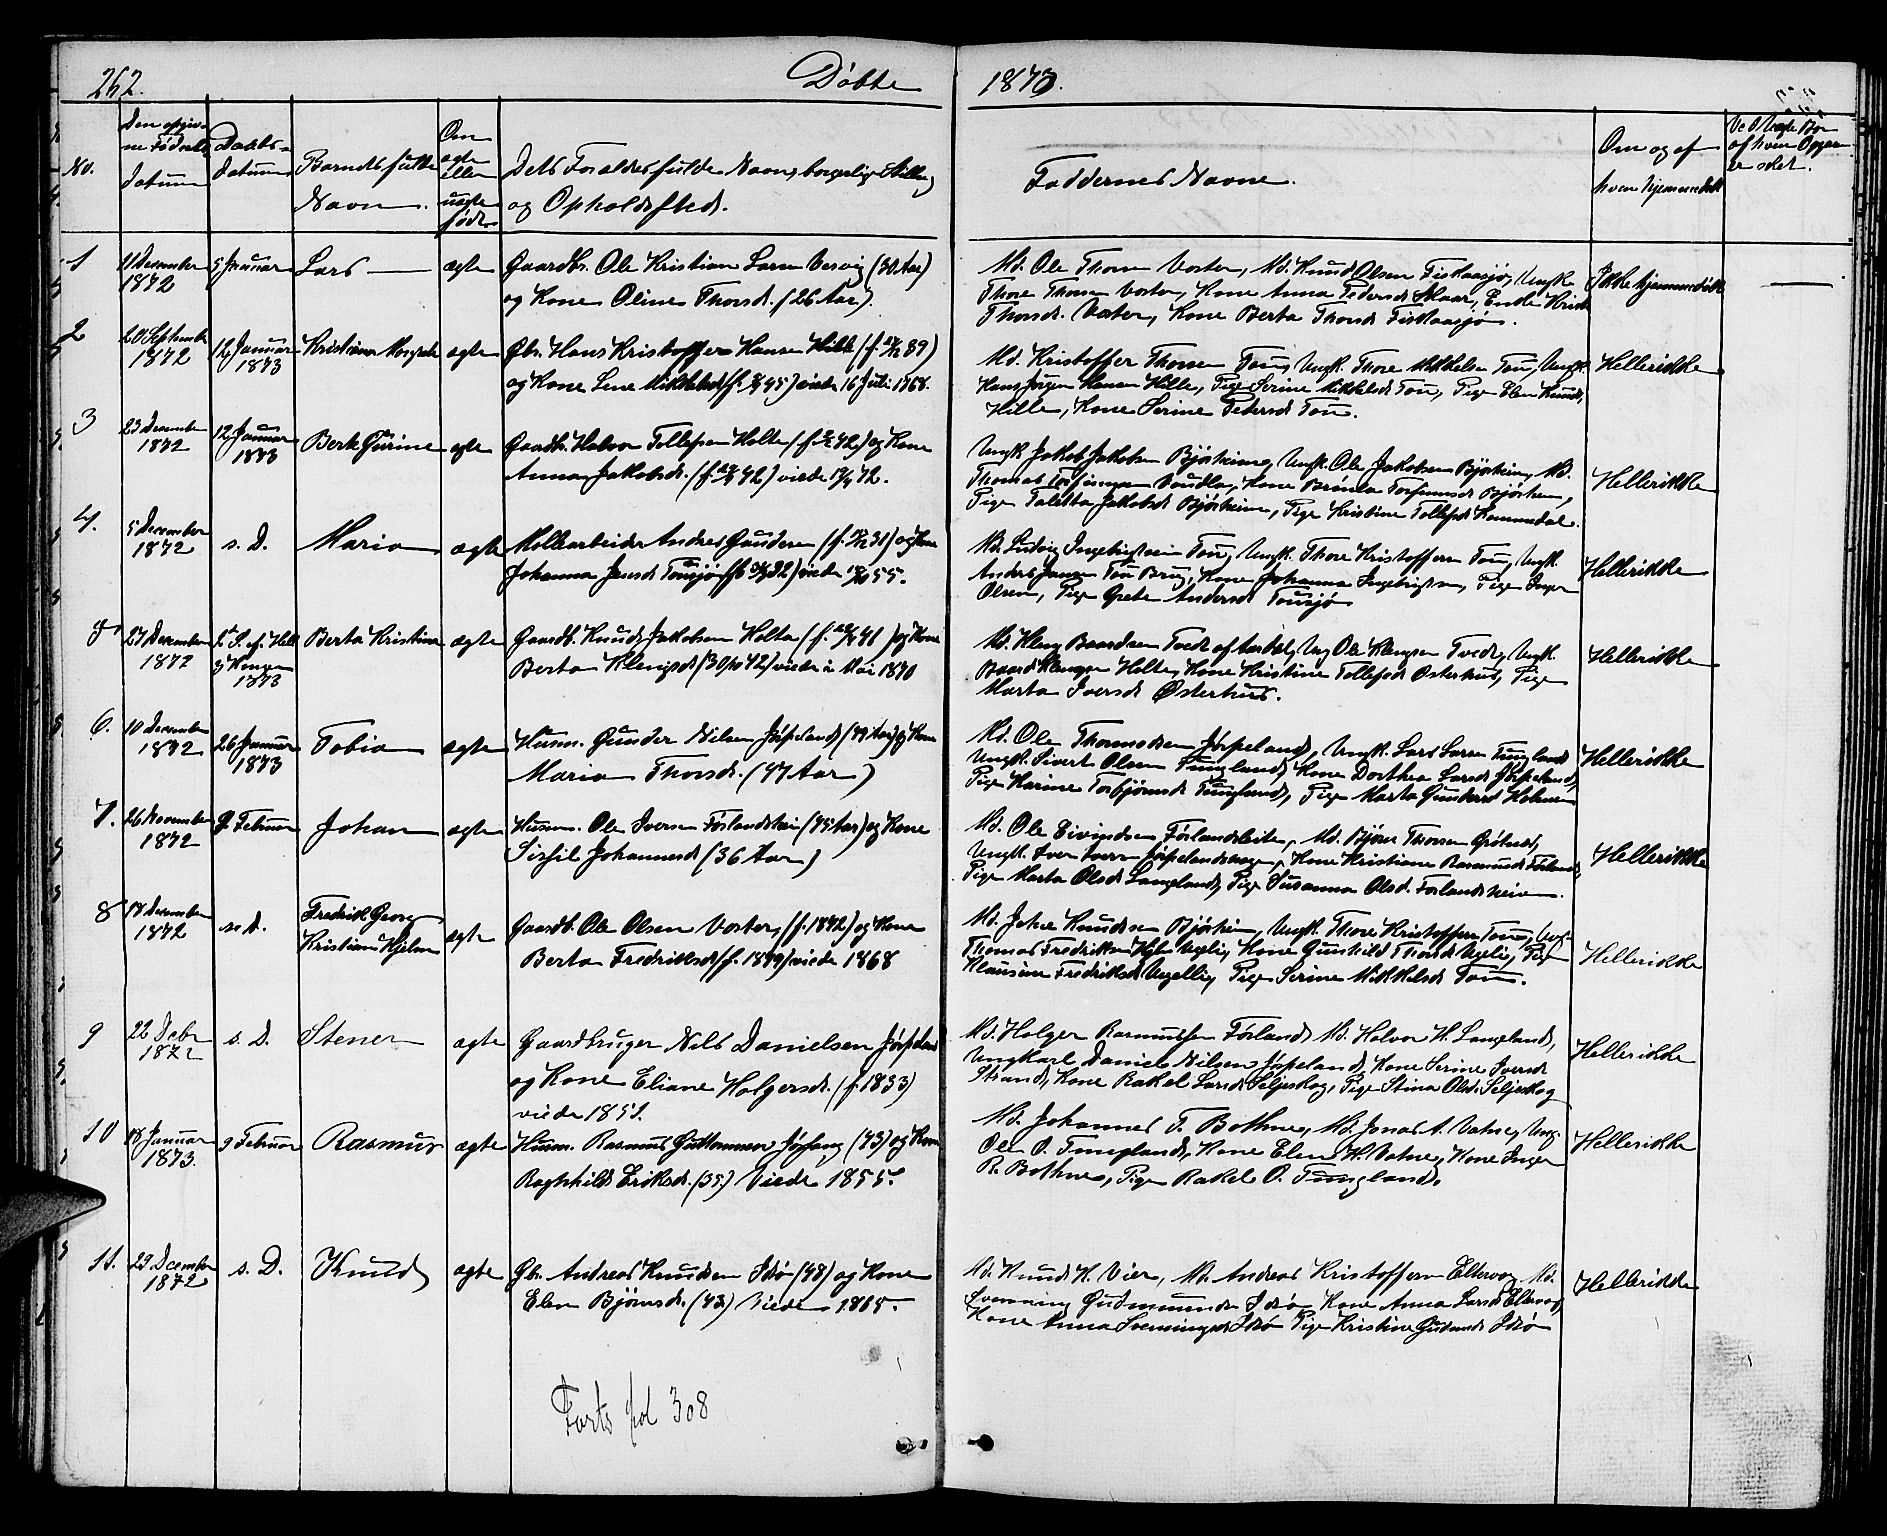 262.
Døbte
1873.
No.
Den opgiv-
ne Fødsels
datum
Daabs-
datum
Barnets fulde
Navn.
Om
ægte
eller
uægte
født
Dets Forældres fulde Navn, borgerlige Stilling
og Opholdssted.
Faddernes Navne.
Om og af
hvem hjemmedøbt
1
11 December
1872
5 Januar
Lars
ægte
Gaardbr. Ole Kristian Larsen Versvig (30 Aar)
og Kone Oline Thorsd. (26 Aar)
Md. Ole Thorsen Vostra, Md. Knud Olsen Fiskaasjø, Ungk.
Thore Thorsen Voster, Kone Anna Pedersd. Skaar, Enke
Thorsd. Voster, Kone Berta Thorsd. Fiskaasjø.
Ikke hjemmedøbt
2
20 September
1872
12 Januar
1873
Kristiane Margrete
ægte
Gbr. Hans Kristoffer Hansen Hille
og Kone Lene Mikkelsd. viede 16 Juli 1868.
Md. Kristoffer Thorsen Tou, Ungk. Thore Mikkelsen Tou, Ungk.
Hans Jørgen Hansen Hille, Pige Serine Mikkelsd. Tou, Pige Elen Knudsd.
Hille, Kone Serine Pedersd. Tou.
Hellerikke
3
23 December
1872
12 Januar
1873
Berte Gurine
ægte
Gaardb. Halvor Tollefsen Holta og Kone
Anna Jakobsd. viede
Ungk. Jakob Jakobsen Bjørheim, Ungk. Ole Jakobsen Bjørheim, Md.
Thomas Torfinnsen Voudla, Kone Torfinnsd. Bjørheim,
Pige Taletta Jakobsd. Bjørheim, Pige Kristine Tollefsd.
Hellerikke
4.
5 December
1872
s. D.
Maria
ægte
Mølearbeider Andres Gundersen og Kone
Johanna Jensd. Tousjø viede
Md. Ludvig Ingebrigtsen Tou, Ungk. Thore Kristoffersen Tou, Ungk.
Anders Jansen Tou Brug, Kone Johanna Ingebrigtsen, Pige Inger
Olsen, Pige Grete Andersd. Tousjø
Hellerikke
5
27 December
1872
2d S. ef. Hell.
3 Konger
1873
Berta Kristina
ægte
Gaardb. Knud Jakobsen Holta og Kone
Berta Klengsd. viede i Mai 1870
Md. Kleng Baardsen Tvedt af Aardal, Ung. Ole Klengsen Tvedt, Ungk.
Baard Klengsen Holta, Kone Kristine Tollefsd. Østerhus, Pige
Marta Iversd. Østerhus.
Hellerikke
6.
10 December
1872
26 Januar
1873
Tobia
ægte
Husm. Gunder Nilsen Jørpeland (49 Aar) og Kone
Maria Thorsd. (47 Aar)
Md. Ole Thormodsen Jørpeland, Ungk. Lars Larsen Tungland
Ungk. Sivert Olsen Tungland, Kone Dorthea Larsd. Jørpeland,
Pige Karine Torbjørnsd. Tungland, Pige Marta Gundersd. Holmen
Hellerikke
7.
26 November
1872
9 Februar
Johan
ægte
Husm. Ole Iversen Førlandsheia (45 Aar) og Kone
Sissil Johannesd. (36 Aar)
Md. Ole Eivindsen Førlandsleite, Md. Bjørn Thorsen Grøtnes,
Ungk. Iver Iversen Jørpelandsvaag, Kone Kristiane Rasmusd. Førland,
Pige Marta Olsd. Langeland, Pige Susanna Olsd. Førlandsheia.
Hellerikke
8
18 December
1872
s. D.
Fredrik Georg
Kristian Hjelm
ægte
Gaardb. Ole Olsen Voster, (f. 1842) og Kone
Berta Fredriksd. (f. 1849) viede 1868
Md. John Knudsen Bjørheim, Ungk. Thore Kristoffersen Tou, Ungk.
Thomas Fredriksen, Kone Gunhild Thorsd., Pige
Klausine Fredriksd., Pige Serine Mikkelsd. Tou.
Hellerikke
9
22 Debr
1872
s. D.
Stener
ægte
Gaardbruger Nils Danielsen Jørpeland
og Kone Eliane Holgersd. (f. 1833)
viede 1851.
Md. Holger Rasmussen Førland, Md. Halvor H. Langeland,
Ungkarl Daniel Nilsen Jørpeland, Kone Serine Iversd.
Strand, Kone Rakel Larsd. Seljeskog, Pige Stina Olsd. Seljeskog
Hellerikke
10
18 Januar
1873.
9 Februar
Rasmus
ægte
Husm. Rasmus Guttormsen Jøssang (43) og Kone
Raghnhild Eriksd. (35) Viede 1855.
Md. Johannes T. Bothne, Md. Jonas A. Vatne, Ung.
Ole O. Tungland, Kone Elen H. Vatne, Kone Inger
R. Bothne, Pige Rakel O. Tungland.
Hellerikke
11.
29 December
1872
s. D.
Knud
ægte
Gb. Andreas Knudsen Idsø (48) og Kone
Elen Bjørnsd. (43) Viede 1865.
Md. Knud H. Vier, Md. Andreas Kristoffersen Eltervaag, Md.
Svenning Gudmundsen Idsø, Kone Anna Larsd. Eltervaag,
Kone Anna Svenningsd. Idsø Pige Kristine Gudmundsd. Idsø
Hellerikke
Forts fol 308